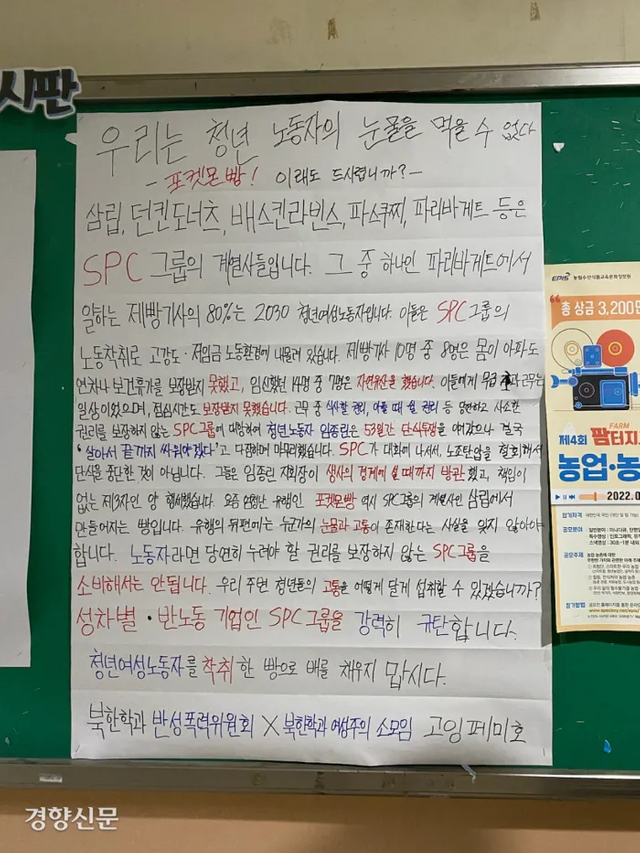 시판
우리는 청년 노동자의 눈물을 먹을 수 없다
- 포켓몬빵! 이래도 드시렵니까? -
삼립, 던킨도너츠, 배스킨라빈스, 파스쿠찌, 파리바게트 등은
SPC그룹의 계열사들입니다. 그 중 하나인 파리바게트에서
일하는 제빵기사의 80%는 2030 청년여성노동자입니다. 이들은 SPC그룹의
노동착취로 고강도·저임금 노동환경에 내몰려 있습니다. 제빵기사 10명 중 8명은 몸이 아파도
연차나 보건휴가를 보장받지 못했고, 임신했던 14명 중 7명은 자연유산을 했습니다. 이들에게
일상이었으며, 점심시간도 보장받지 못했습니다. 근무 중 식사할 권리, 아플 때 쉴 권리 등 당연하고 사소한
권리를 보장하지 않는 SPC그룹에 대항하여 청년노동자 임종린은 53일간 단식투쟁을 이어갔으나 결국
'살아서 끝까지 싸워야겠다'고 다짐하며 마무리했습니다. SPC가 대화에 나서서, 노조탄압을 철회해서
단식을 중단한 것이 아닙니다. 그들은 임종린 지회장이 생사의 경계에 설 때까지 방관했고, 책임이
없는 제3자인 양 행세했습니다. 요즘 엄청난 유행인 포켓몬빵 역시 SPC그룹의 계열사인 삼립에서
만들어지는 빵입니다. 유행의 뒤편에는 누군가의 눈물과 고통이 존재한다는 사실을 잊지 않아야
합니다. 노동자라면 당연히 누려야 할 권리를 보장하지 않는 SPC그룹을
소비해서는 안됩니다. 우리 주변 청년들의 고통을 어떻게 달게 섭취할 수 있겠습니까?
성차별·반노동 기업인 SPC그룹을 강력히 규탄합니다.
청년여성노동자를 착취한 빵으로 배를 채우지 맙시다.
북한학과 반성폭력위원회 X 북한학과 여성주의 소모임 고잉페미호
EPIS 농림수산식품교육문화정보원
총 상금 3,200만
FARM
제4회 팜터지
농업·농
2022.0
참가자격
공모부문
공모주제
참가방법
경향신문